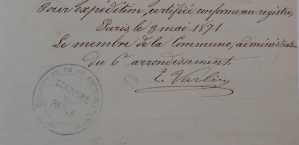 Pour expédition certifiée conforme au registre
Paris le 3 mai 1871
Le membre de la Commune, administrateur
du 6e arrondissement
E. Varlin
COMMUNE
DE
PARIS